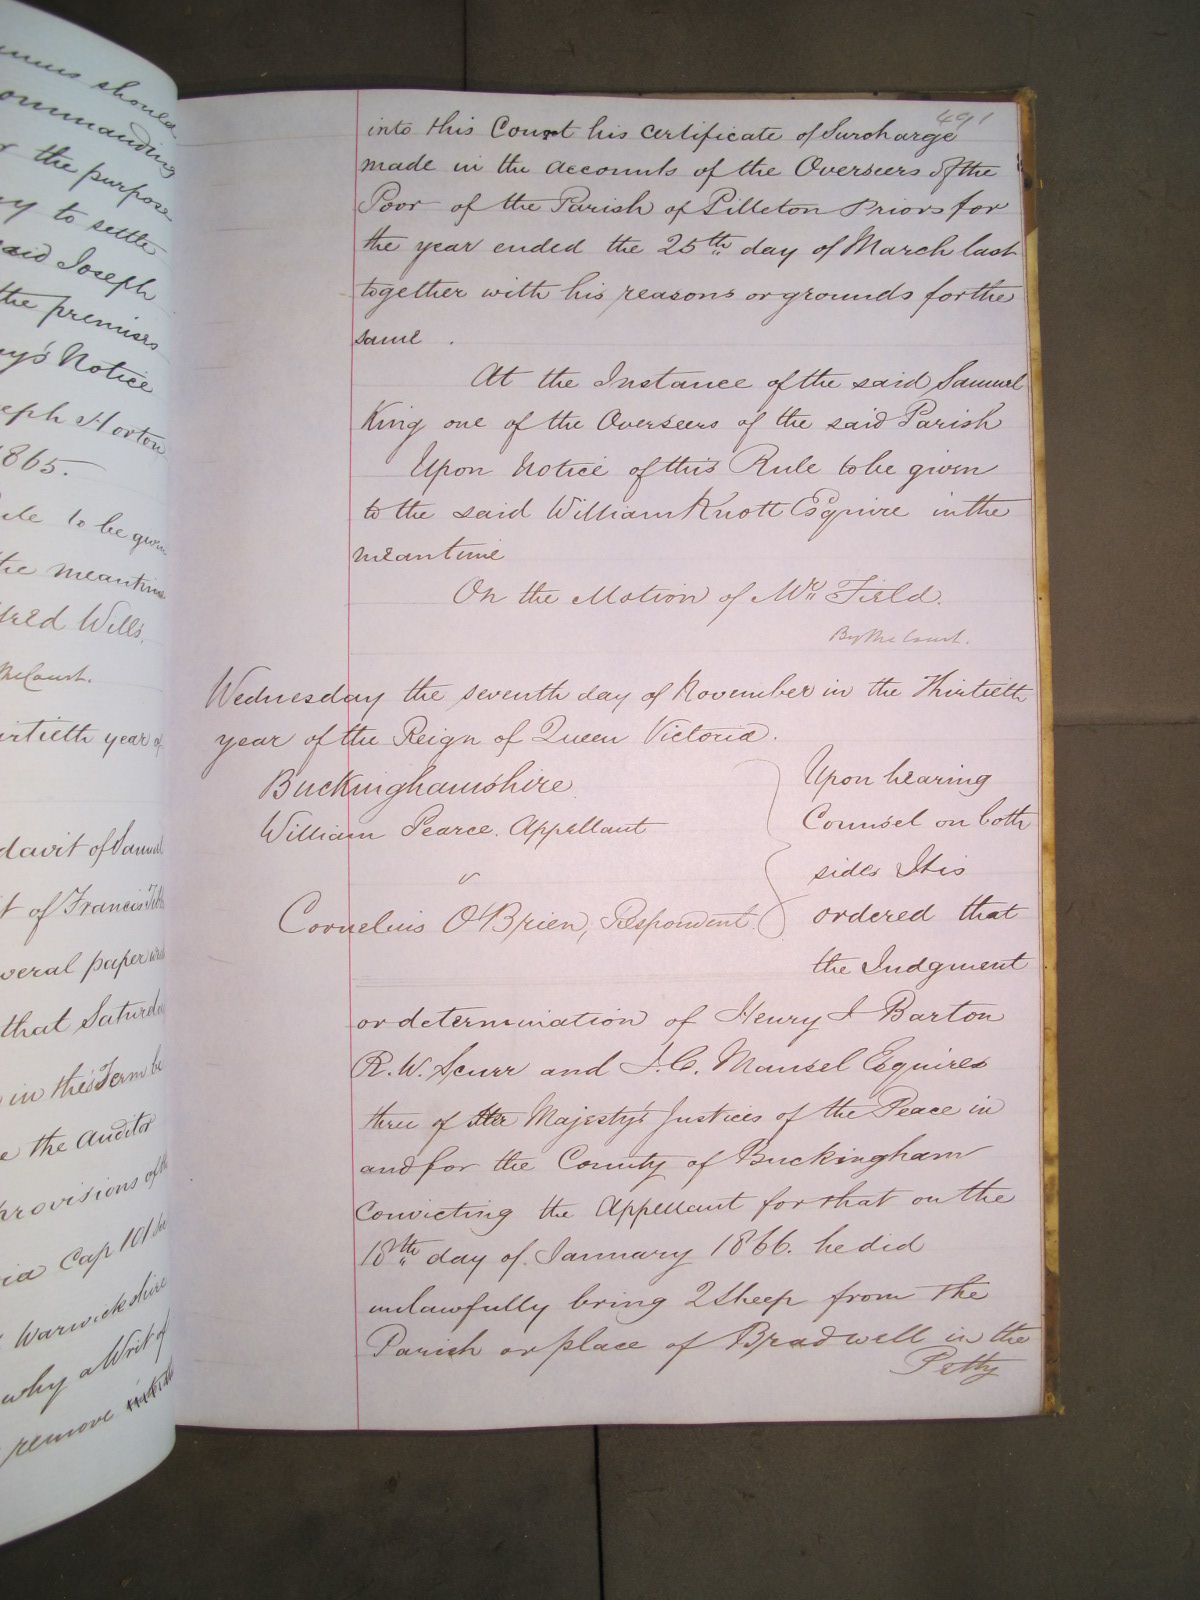 unus should
ommanding
the purpose
y to settle
said Joseph
the premises
ay's Notice
seph Horton
1865.
ule to be given
the meantime
fred Wills.
the Court.
irtieth year of
davit of Samuel
it of Francis
veral paper
that Saturday
in this Term be
e the Auditor
provisions of the
ia Cap 101
Warwickshire
why a Writ of
remove
491
into this Court his certificate of Surcharge
made in the accounts of the Overseers of the
Poor of the Parish of Pilleton Priors for
the year ended the 25th day of March last
together with his reasons or grounds for the
same.
At the Instance of the said Samuel
King one of the Overseers of the said Parish
Upon Notice of this Rule to be given
to the said William Knott Esquire in the
meantime
On the Motion of Mr Field.
By the Court.
Wednesday the seventh day of November in the Thirtieth
year of the Reign of Queen Victoria.
Buckinghamshire
William Pearce. Appellant
v
Cornelius O'Brien, Respondent
Upon hearing
Counsel on both
sides It is
ordered that
the Judgment
or determination of Henry I Barton
R. W. Scurr and J. C. Mansel Esquires
three of Her Majesty's Justices of the Peace in
and for the County of Buckingham
Convicting the Appellant for that on the
18th day of January 1866. he did
unlawfully bring 2 Sheep from the
Parish or place of Bradwell in the
Petty